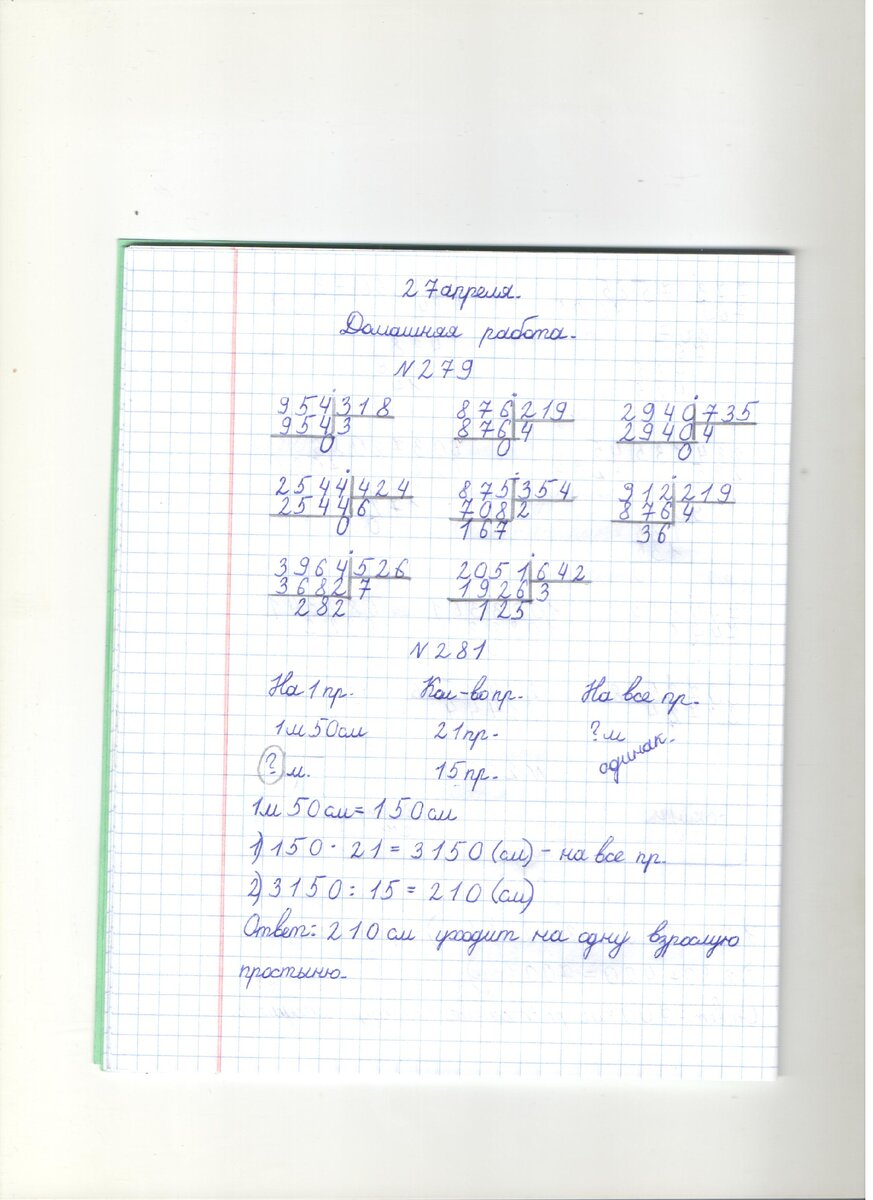 27 апреля.
Домашняя работа.
N 279
954 318 876 219 2940 735
954 3 876 4 2940 4
0 0 0
2544 424 875 354 912 219
2544 6 708 2 876 4
0 167 36
3964 526 2051 642
3682 7 1926 3
282 125
N 281
На 1 пр. Кол-во пр. На все пр.
1м 50см 21 пр. ? м
? м. 15 пр. одинак.
1м 50 см = 150 см
1) 150 · 21 = 3150 (см) - на все пр.
2) 3150 : 15 = 210 (см)
Ответ: 210 см уходит на одну взрослую
простыню.